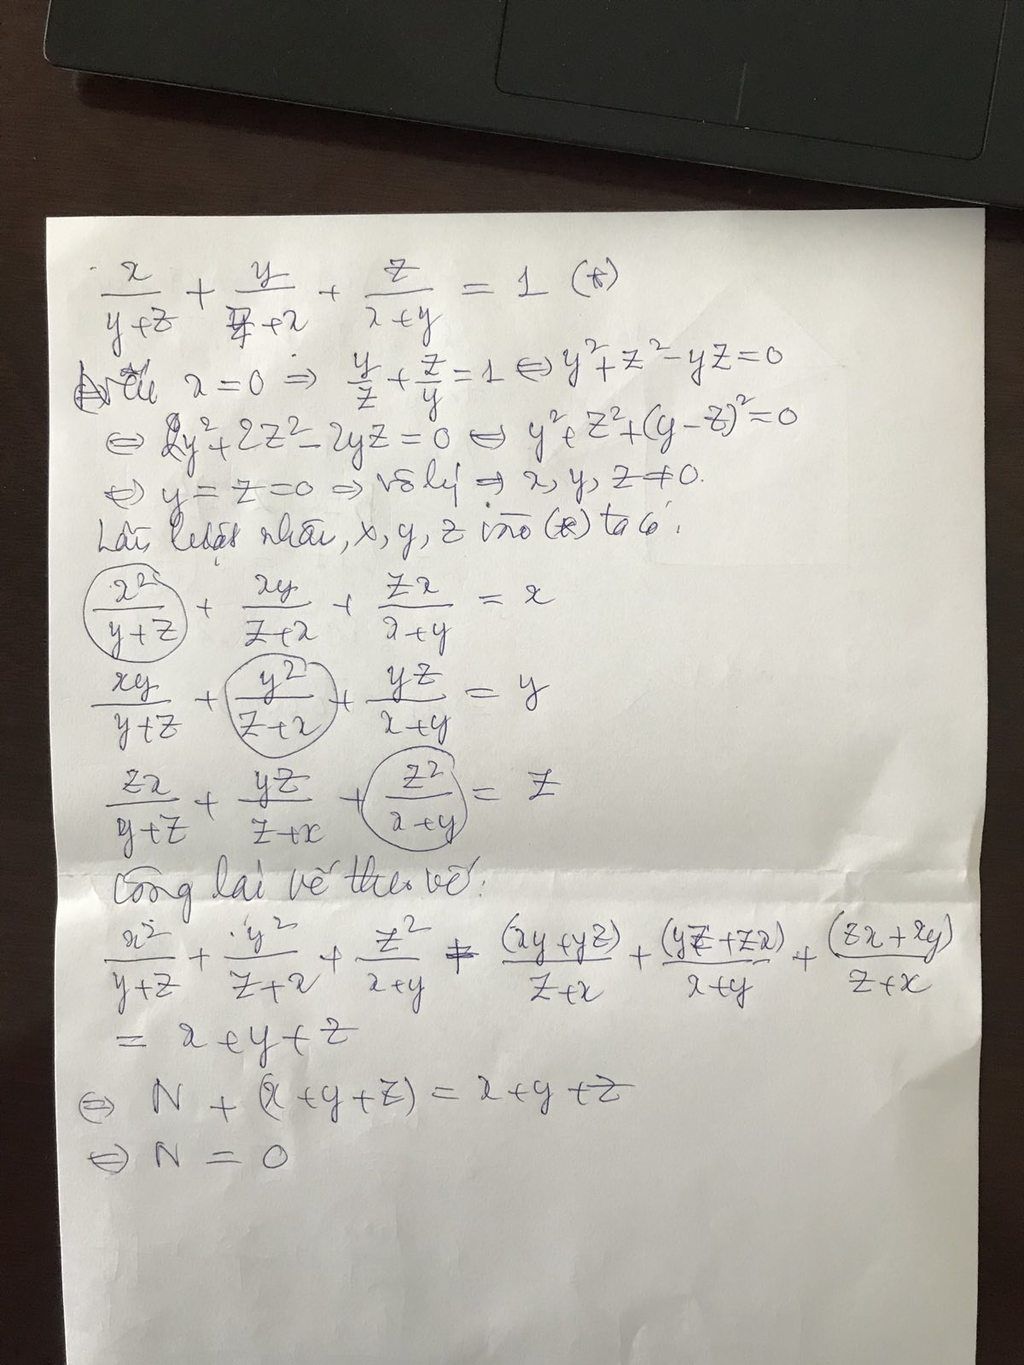 x/(y+z) + y/(z+x) + z/(x+y) = 1 (*)
Nếu x=0 ⇒ y/z + z/y = 1 ⇔ y²+z²-yz=0
⇔ 2y²+2z²-2yz=0 ⇔ y²+z²+(y-z)²=0
⇔ y=z=0 ⇒ vô lý ⇒ x, y, z ≠ 0.
Lần lượt nhân, x, y, z vào (*) ta có:
x²/(y+z) + xy/(z+x) + zx/(x+y) = x
xy/(y+z) + y²/(z+x) + yz/(x+y) = y
zx/(y+z) + yz/(z+x) + z²/(x+y) = z
Cộng lại vế theo vế:
x²/(y+z) + y²/(z+x) + z²/(x+y) + (xy+yz)/(z+x) + (yz+zx)/(x+y) + (zx+xy)/(z+x)
= x+y+z
⇔ N + (x+y+z) = x+y+z
⇔ N = 0